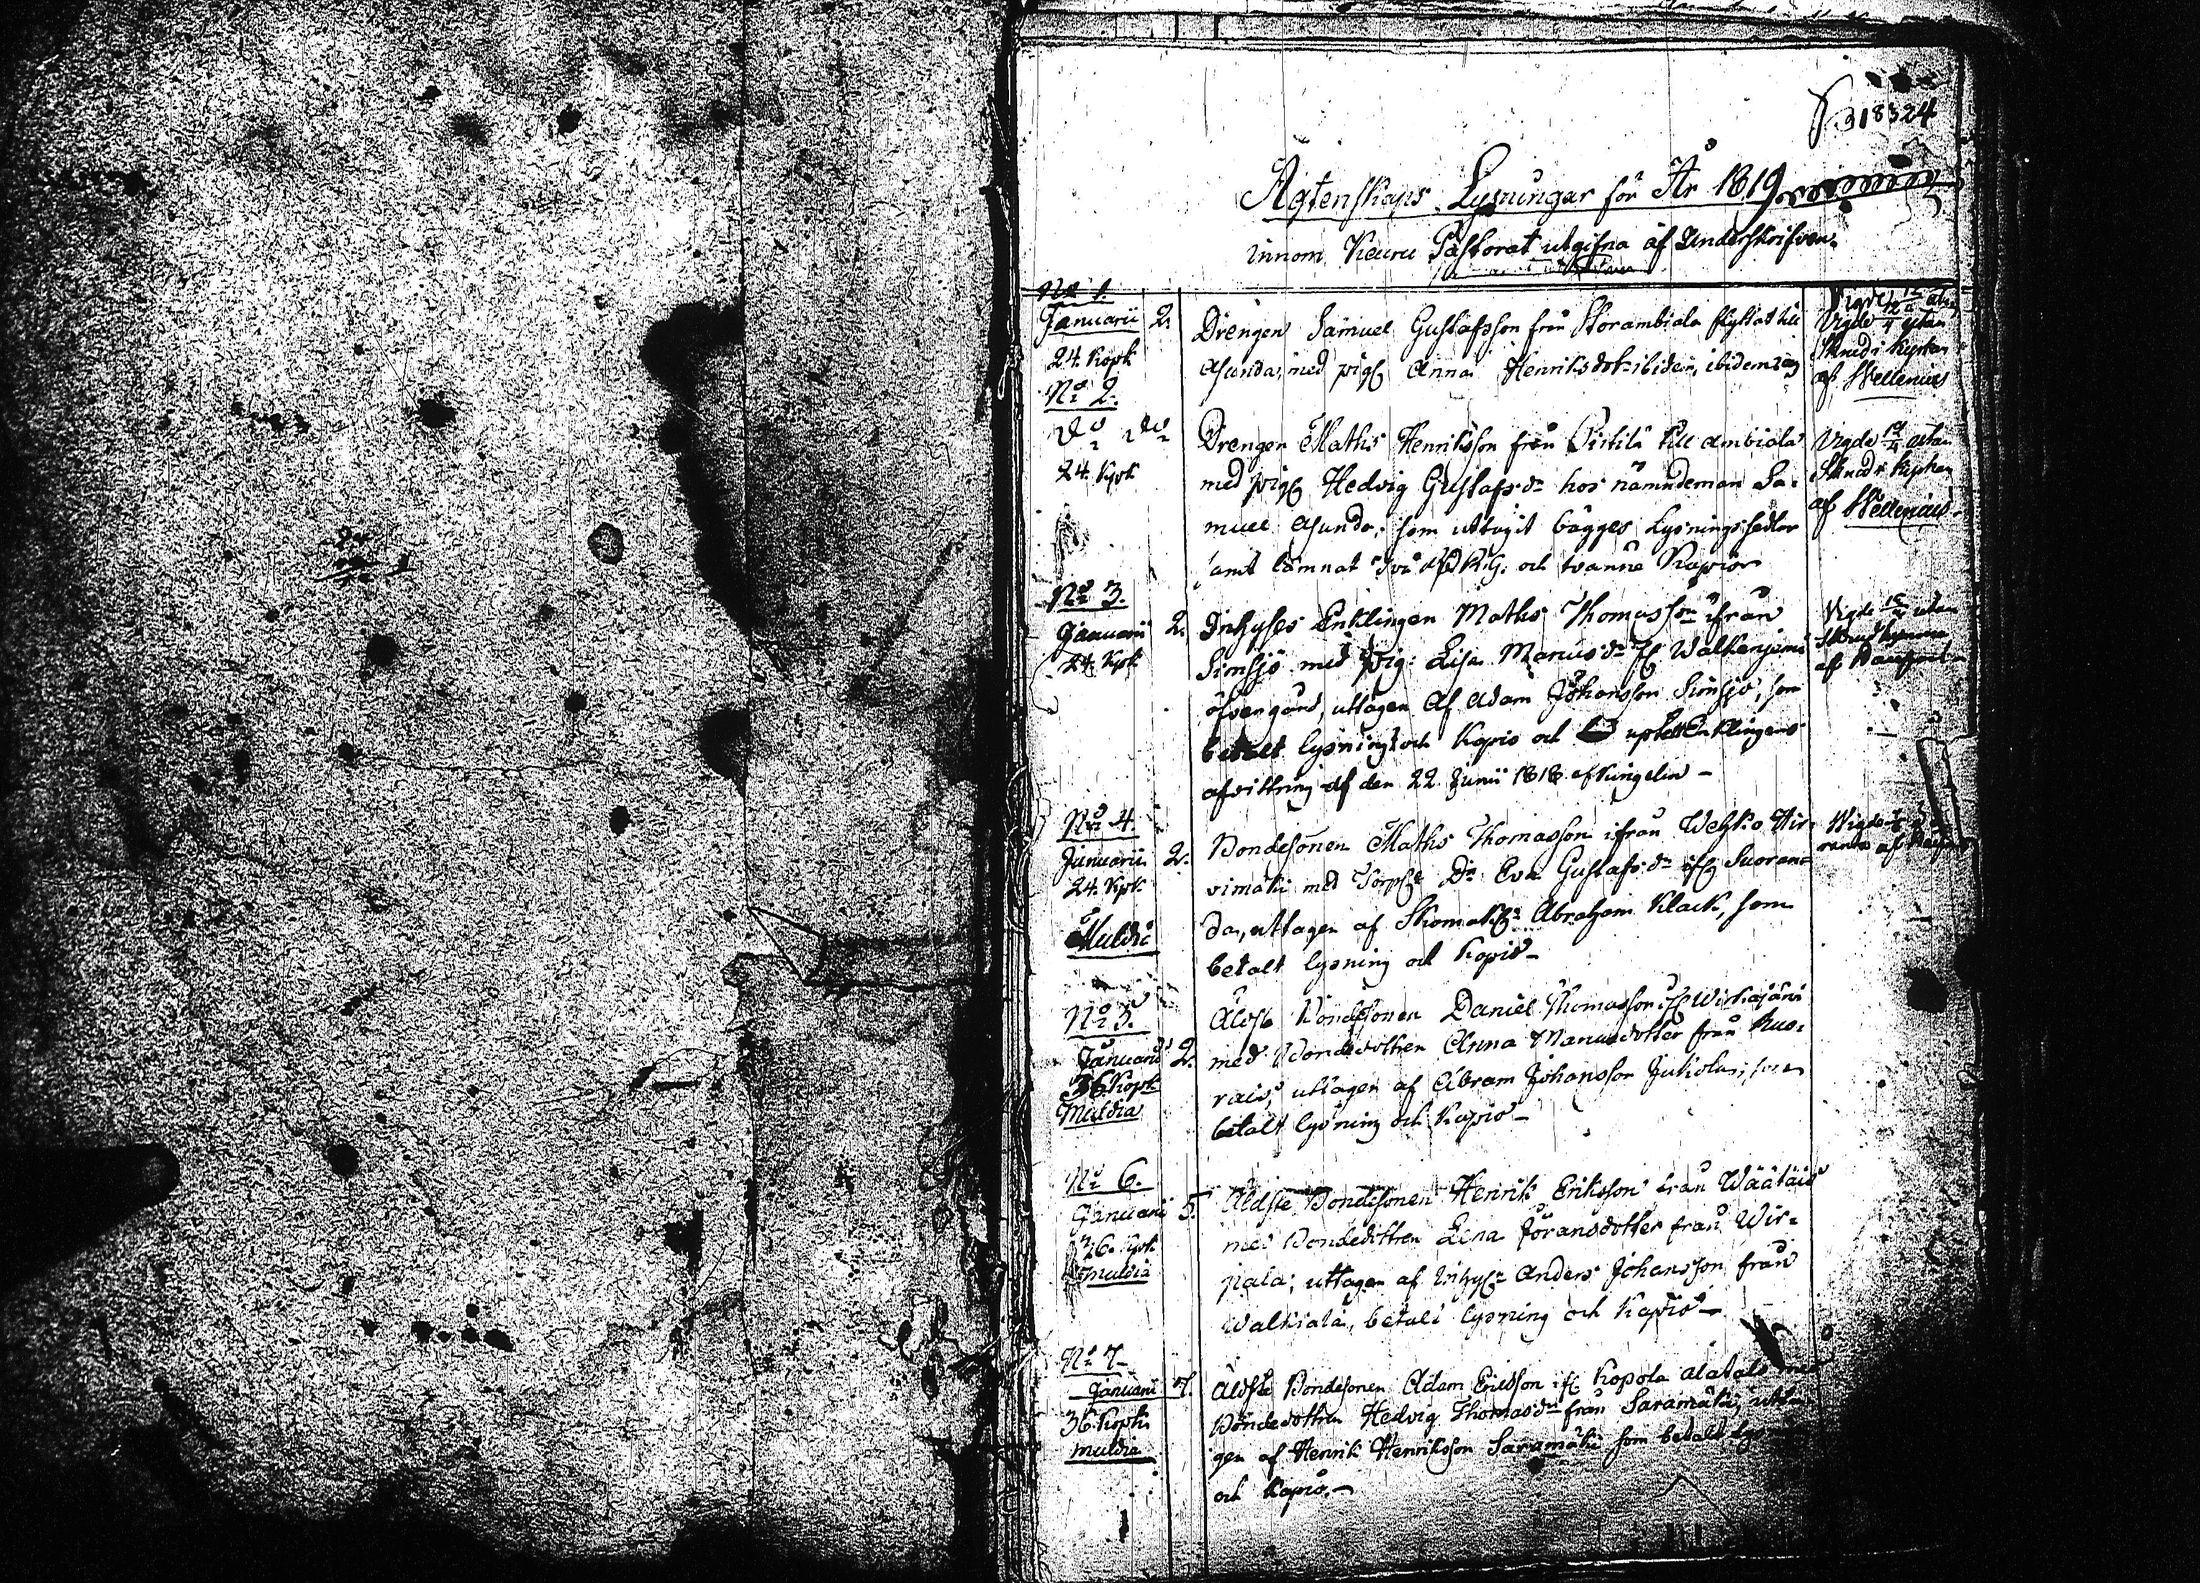 318324
Ägtenskaps Lysningar för År 1819
innom Keuru Pastorat utgifna af Underskrifven.
No 1.
Januarii 2.
24. Kopk
Drengen Samuel Gustafsson från Storambiala flyttat till
Asunda, med pig. Anna Henriksdotr ibidem, ibidem
Vigde utan
Skrud i kyrkan
af Wellenius
No 2.
Do Do
24. Kopk
Drengen Maths Henriksson från Pirtilä till ambiala
med pig. Hedvig Gustafsdr hos nämndeman Sa-
muel Asunda, som uttagit bägges Lysningssedlar
samt lämnat två och tvänne Kapior
Vigde utan
Skrud i kyrkan
af Wellenius.
No 3.
Januarii 2.
24. Kpk
Inhyses Enklingen Maths Thomasson ifrån
Simsjö med pig. Lisa Manusdr Walkenjemi
öfvergård, uttagen af Adam Johansson Simsjö, som
betalt lysning och Kapio och Enklingens
afvittring af den 22 Junii 1818 af Kingelin –
Vigde utan
No 4.
Januarii 2.
24. Kpk
Muldia
Bondesonen Maths Thomasson ifrån Wehko Hir-
vimäki med Dr Eva Gustafsdr Suoran-
da, uttagen af Abraham Klack, som
betalt lysning och Kapio –
Vigde
No 5.
Januarii 2.
36 Kopk
Muldia
Äldste Bondesonen Daniel Thomasson
med Bondedottren Anna Manusdotter från
uttagen af Abram Johansson Jukola, som
betalt lysning och Kapio –
No 6.
Januarii 5.
36. Kpk
Muldia
Äldste Bondesonen Henrik Eriksson från Wäätäis
med Bondedottren Lena Jöransdotter från Wir-
piala; uttagen af Inhys. Anders Johansson från
Walkiala, betalt lysning och Kapio –
No 7.
Januarii 7.
36 Kopk
Muldia
Äldste Bondesonen Adam Ericsson Kopola Alatalo
Bondedottren Hedvig Thomasdr från Saramäki, utta-
gen af Henrik Henriksson Saramäki som betalt
och Kapio. –